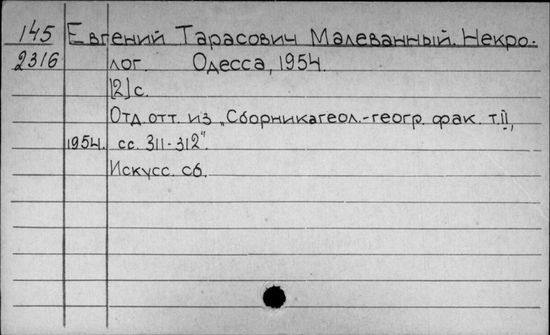 145 Евгений Тарасович Малеванный. Некро-
2316 лог. Одесса, 1954.
[2] с.
Отд. отт. из „Сборника геол.-геогр. фак. т. II,
1954. сс. 311-312“.
Искусс. сб.